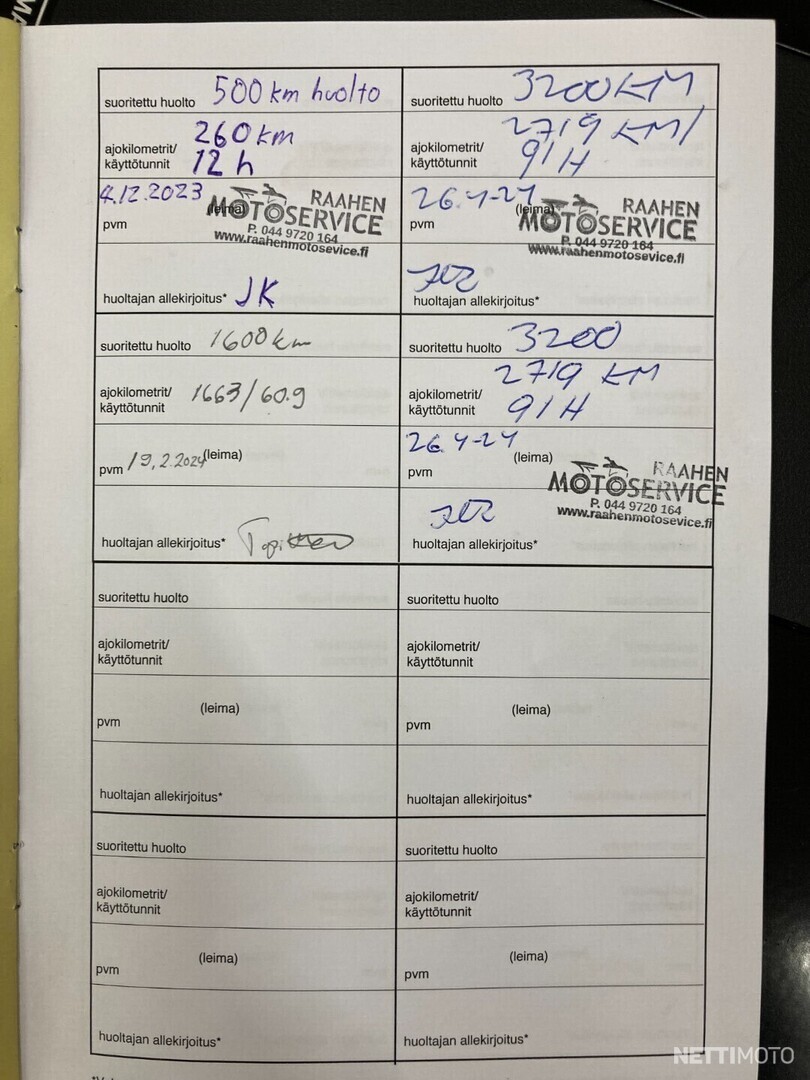 suoritettu huolto 500 km huolto
ajokilometrit/ 260 km
käyttötunnit 12 h
4.12.2023
pvm (leima)
RAAHEN
MOTOSERVICE
P. 044 9720 164
www.raahenmotosevice.fi
huoltajan allekirjoitus* JK
suoritettu huolto 3200 KM
ajokilometrit/ 2719 KM/
käyttötunnit 91 H
26.4-24
pvm (leima)
RAAHEN
MOTOSERVICE
P. 044 9720 164
www.raahenmotosevice.fi
huoltajan allekirjoitus*
suoritettu huolto 1600 km
ajokilometrit/
käyttötunnit 1663/60.9
pvm 19.2.2024 (leima)
huoltajan allekirjoitus*
suoritettu huolto 3200
ajokilometrit/ 2719 KM
käyttötunnit 91 H
26.4-24
pvm (leima)
RAAHEN
MOTOSERVICE
P. 044 9720 164
www.raahenmotosevice.fi
huoltajan allekirjoitus*
suoritettu huolto
ajokilometrit/
käyttötunnit
(leima)
pvm
huoltajan allekirjoitus*
suoritettu huolto
ajokilometrit/
käyttötunnit
(leima)
pvm
huoltajan allekirjoitus*
suoritettu huolto
ajokilometrit/
käyttötunnit
(leima)
pvm
huoltajan allekirjoitus*
suoritettu huolto
ajokilometrit/
käyttötunnit
(leima)
pvm
huoltajan allekirjoitus*
NETTIMOTO